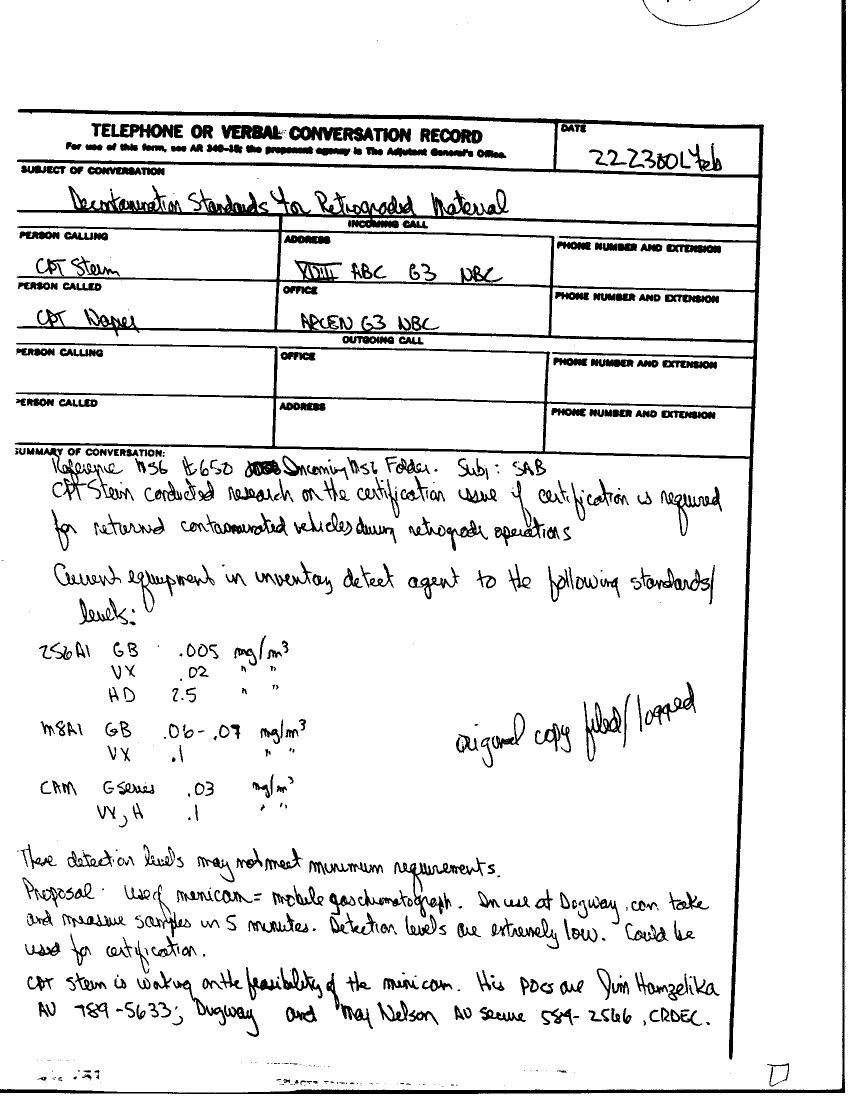 TELEPHONE OR VERBAL CONVERSATION RECORD
For use of this form, see AR 340-15; the proponent agency is The Adjutant General's Office.
DATE
222300L Feb
SUBJECT OF CONVERSATION
Decontamination Standards for Retrograded Material
INCOMING CALL
PERSON CALLING
CPT Stein
ADDRESS
XVIII ABC G3 NBC
PHONE NUMBER AND EXTENSION
PERSON CALLED
CPT Napier
OFFICE
ARCEN G3 NBC
PHONE NUMBER AND EXTENSION
OUTGOING CALL
PERSON CALLING
OFFICE
PHONE NUMBER AND EXTENSION
PERSON CALLED
ADDRESS
PHONE NUMBER AND EXTENSION
SUMMARY OF CONVERSATION:
Reference MSG #650 Incoming MSG Folder. Subj: SAB
CPT Stein conducted research on the certification issue if certification is required
for returned contaminated vehicles during retrograde operations
Current equipment in inventory detect agent to the following standards/
levels:
256A1 GB .005 mg/m³
VX .02 " "
HD 2.5 " "
M8A1 GB .06-.07 mg/m³
VX .1 " "
original copy filed/logged
CAM G series .03 mg/m³
VX, H .1 " "
These detection levels may not meet minimum requirements.
Proposal: Use of minicam = mobile gas chromatograph. In use at Dugway, can take
and measure samples in 5 minutes. Detection levels are extremely low. Could be
used for certification.
CPT Stein is working on the feasibility of the minicam. His POCs are Jim Hamzelika
AV 789-5633; Dugway and Maj Nelson AV secure 584-2566, CRDEC.